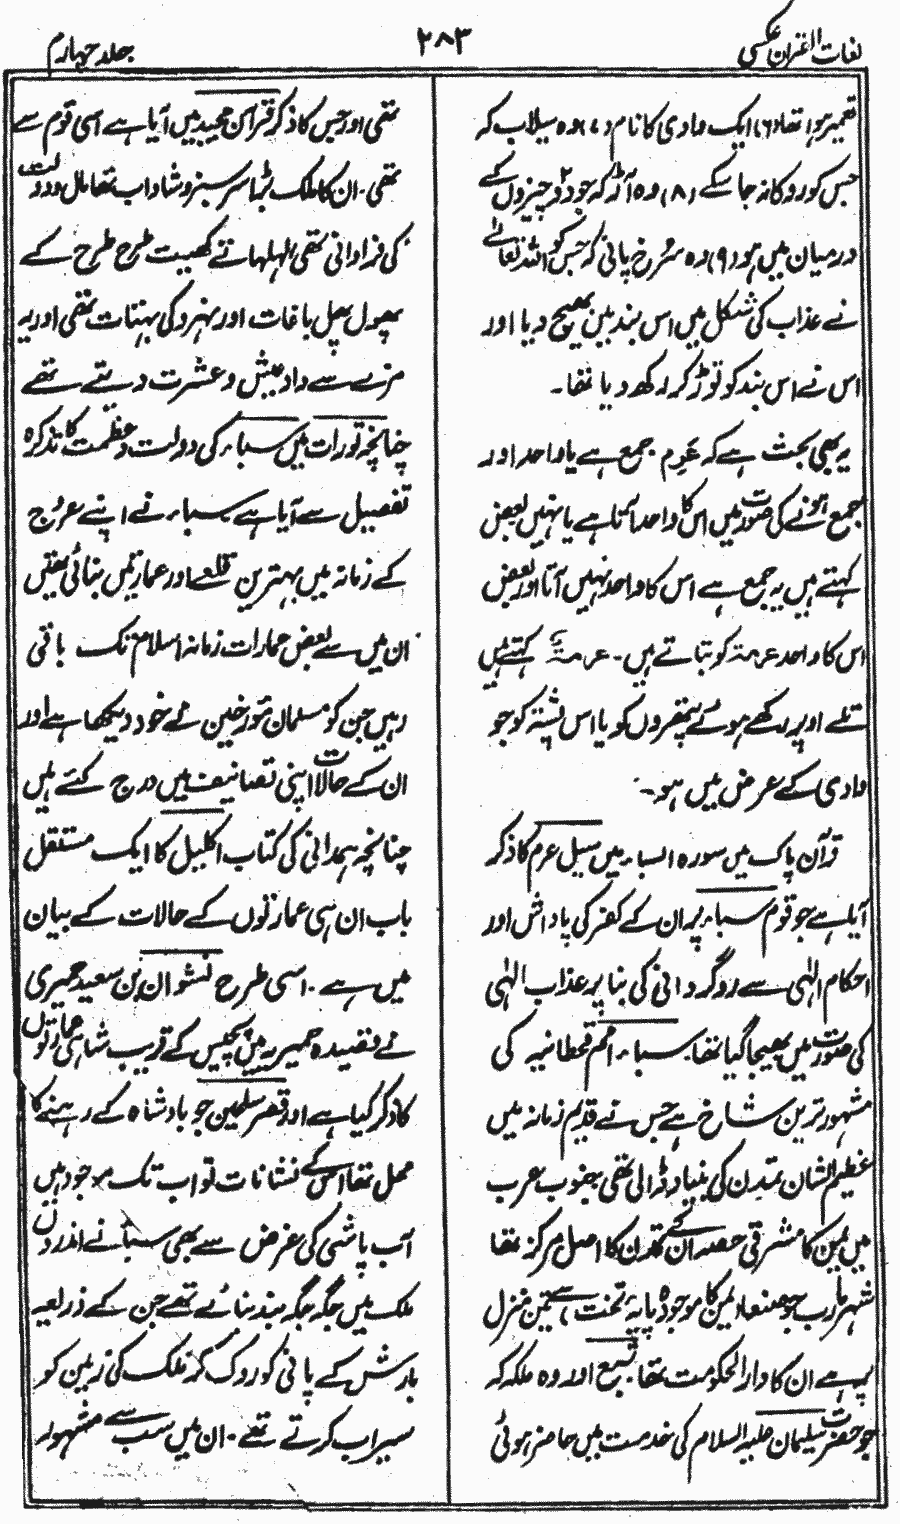 لغات القرآن عکسی
۲۸۳
جلد چہارم
تعمیر ہوا تھا (۶) ایک وادی کا نام (۷) وہ سیلاب کہ
جس کو روکا نہ جا سکے (۸) وہ آڑ کہ جو دو چیزوں کے
درمیان میں ہو (۹) وہ سُرخ پانی کہ جس کو اللہ تعالیٰ
نے عذاب کی شکل میں اس بند میں بھیج دیا اور
اس نے اس بند کو توڑ کر رکھ دیا تھا۔
یہ بھی بحث ہے کہ عَرِم جمع ہے یا واحد اور
جمع ہونے کی صورت میں اس کا واحد آتا ہے یا نہیں بعض
کہتے ہیں یہ جمع ہے اس کا واحد نہیں آتا اور بعض
اس کا واحد عرمۃ کو بتاتے ہیں۔ عرمۃ کہتے ہیں
تلے اور پر رکھے ہوئے پتھروں کو یا اس پشتہ کو جو
وادی کے عرض میں ہو۔
قرآن پاک میں سورہ السباء میں سیل عرم کا ذکر
آیا ہے جو قوم سباء پر ان کے کفر کی پاداش اور
احکام الٰہی سے روگردانی کی بنا پر عذاب الٰہی
کی صورت میں بھیجا گیا تھا۔ سباء، امم قحطانیہ کی
مشہور ترین شاخ ہے جس نے قدیم زمانہ میں
عظیم الشان تمدن کی بنیاد ڈالی تھی جنوب عرب
میں یمن کا مشرقی حصہ ان کے تمدن کا اصل مرکز تھا
شہر مارب جو صنعاء یمن کا موجودہ پایۂ تخت ہے، تین منزل
پر ہے ان کا دار الحکومت تھا۔ تبع اور وہ ملکہ کہ
جو حضرت سلیمان علیہ السلام کی خدمت میں حاضر ہوئی
تھی اور جس کا ذکر قرآن مجید میں آیا ہے اسی قوم سے
تھی۔ ان کا ملک بڑا سرسبز و شاداب تھا مال و دولت
کی فراوانی تھی لہلہاتے کھیت طرح طرح کے
پھول پھل باغات اور نہر کی بہتات تھی اور یہ
مزے سے داد عیش و عشرت دیتے تھے
چنانچہ تورات میں سباء کی دولت و عظمت کا تذکرہ
تفصیل سے آیا ہے سباء نے اپنے عروج
کے زمانہ میں بہترین قلعے اور عمارتیں بنائی تھیں
ان میں سے بعض عمارات زمانہ اسلام تک باقی
رہیں جن کو مسلمان مؤرخین نے خود دیکھا ہے اور
ان کے حالات اپنی تصانیف میں درج کئے ہیں
چنانچہ ہمدانی کی کتاب اکلیل کا ایک مستقل
باب ان ہی عمارتوں کے حالات کے بیان
میں ہے۔ اسی طرح نشوان بن سعید حمیری
نے قصیدہ حمیریہ میں پچیس کے قریب شاہی عمارتوں
کا ذکر کیا ہے اور قصر سلحین جو بادشاہ کے رہنے کا
محل تھا اس کے نشانات تو اب تک موجود ہیں
آب پاشی کی غرض سے بھی سبا نے اندرون
ملک میں جگہ جگہ بند بنائے تھے جن کے ذریعہ
بارش کے پانی کو روک کر ملک کی زمین کو
سیراب کرتے تھے۔ ان میں سب سے مشہور